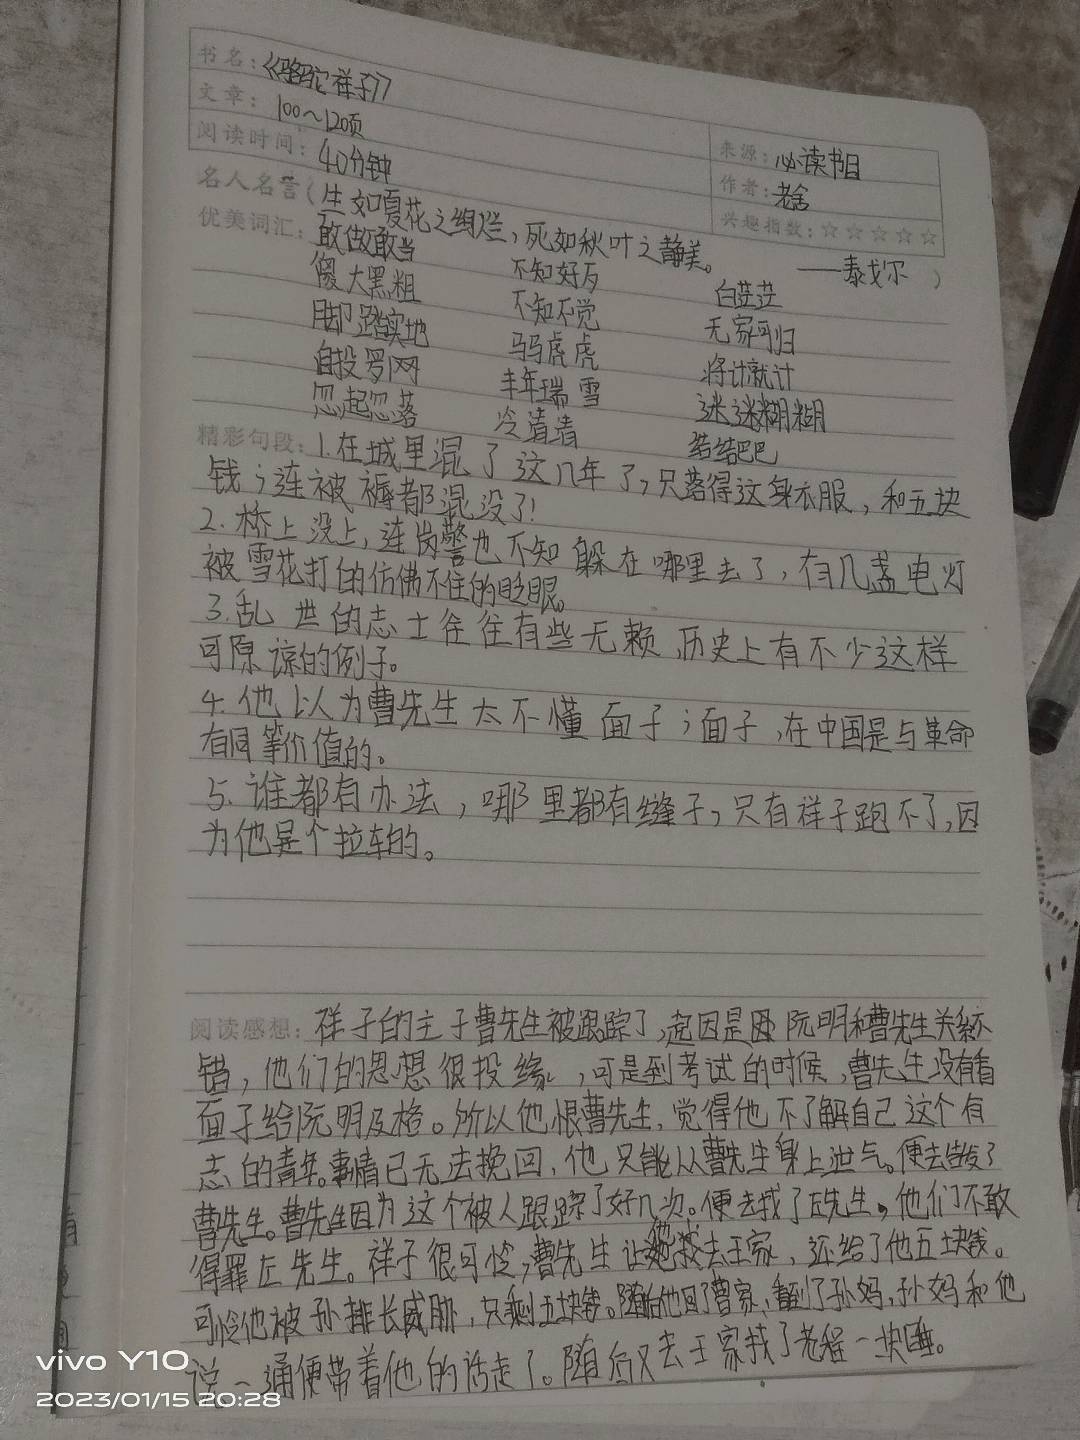 书名:《骆驼祥子》
文章:100~120页
阅读时间:40分钟
来源:必读书目
作者:老舍
兴趣指数:☆☆☆☆☆
名人名言(生如夏花之绚烂,死如秋叶之静美。——泰戈尔)
优美词汇:敢做敢当 不知好歹 白茫茫
傻大黑粗 不知不觉 无家可归
脚踏实地 马马虎虎 将计就计
自投罗网 丰年瑞雪 迷迷糊糊
忽起忽落 冷清清 结结巴巴
精彩句段:1.在城里混了这几年了,只落得这身衣服,和五块
钱;连被褥都混没了!
2.桥上没上,连岗警也不知躲在哪里去了,有几盏电灯
被雪花打的仿佛不住的眨眼。
3.乱世的志士往往有些无赖,历史上有不少这样
可原谅的例子。
4.他以为曹先生太不懂面子;面子,在中国是与革命
有同等价值的。
5.谁都有办法,哪里都有缝子,只有祥子跑不了,因
为他是个拉车的。
阅读感想:祥子的主子曹先生被跟踪了,起因是因阮明和曹先生关系不
错,他们的思想很投缘,可是到考试的时候,曹先生没有看
面子给阮明及格。所以他恨曹先生,觉得他不了解自己这个有
志的青年。事情已无法挽回,他只能从曹先生身上泄气。便去告发了
曹先生。曹先生因为这个被人跟踪了好几次。便去找了左先生,他们不敢
得罪左先生。祥子很可怜,曹先生让他去王家,还给了他五块钱。
可怜他被孙排长威胁,只剩五块钱。随后他回了曹家,看到了孙妈,孙妈和他
说一通便带着他的话走了。随后又去王家找了老程一块睡。
vivo Y10
2023/01/15 20:28